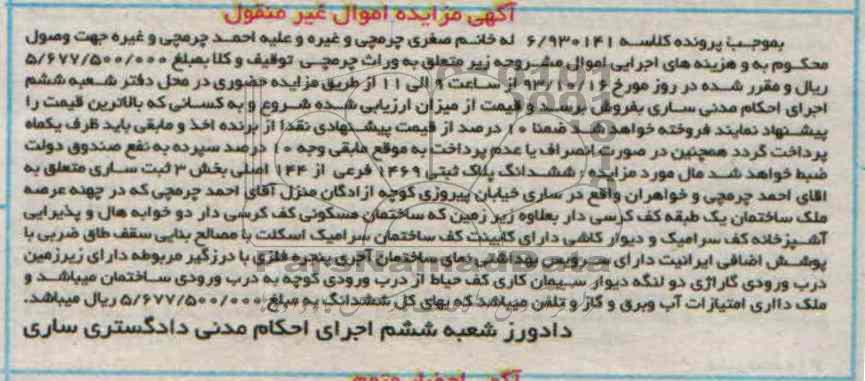 آگهی مزایده اموال غیر منقول
بموجب پرونده کلاسه ۶/۹۳۰۱۴۱ له خانم صغری چرمچی و غیره و علیه احمد چرمچی و غیره جهت وصول
محکوم به و هزینه های اجرایی اموال مشروحه زیر متعلق به وراث چرمچی توقیف و کلا بمبلغ ۵/۶۷۷/۵۰۰/۰۰۰
ریال و مقرر شده در روز مورخ ۹۳/۱۰/۱۶ از ساعت ۹ الی ۱۱ از طریق مزایده حضوری در محل دفتر شعبه ششم
اجرای احکام مدنی ساری بفروش برسد و قیمت از میزان ارزیابی شده شروع و به کسانی که بالاترین قیمت را
پیشنهاد نمایند فروخته خواهد شد ضمنا ۱۰ درصد از قیمت پیشنهادی نقدا از برنده اخذ و مابقی باید ظرف یکماه
پرداخت گردد همچنین در صورت انصراف یا عدم پرداخت به موقع مابقی وجه ۱۰ درصد سپرده به نفع صندوق دولت
ضبط خواهد شد مال مورد مزایده : ششدانگ پلاک ثبتی ۱۴۶۹ فرعی از ۱۴۴ اصلی بخش ۳ ثبت ساری متعلق به
اقای احمد چرمچی و خواهران واقع در ساری خیابان پیروزی کوچه ازادگان منزل آقای احمد چرمچی که در چهنه عرصه
ملک ساختمان یک طبقه کف کرسی دار بعلاوه زیر زمین که ساختمان مسکونی کف کرسی دار دو خوابه هال و پذیرایی
آشپزخانه کف سرامیک و دیوار کاشی دارای کابینت کف ساختمان سرامیک اسکلت با مصالح بنایی سقف طاق ضربی با
پوشش اضافی ایرانیت دارای سرویس بهداشتی نمای ساختمان آجری پنجره فلزی با درزگیر مربوطه دارای زیرزمین
درب ورودی گاراژی دو لنگه دیوار سیمان کاری کف حیاط از درب ورودی کوچه به درب ورودی ساختمان میباشد و
ملک داراری امتیازات آب وبرق و گاز و تلفن میباشد که بهای کل ششدانگ به مبلغ ۵/۶۷۷/۵۰۰/۰۰۰ ریال میباشد.
دادورز شعبه ششم اجرای احکام مدنی دادگستری ساری
ParsNamadData